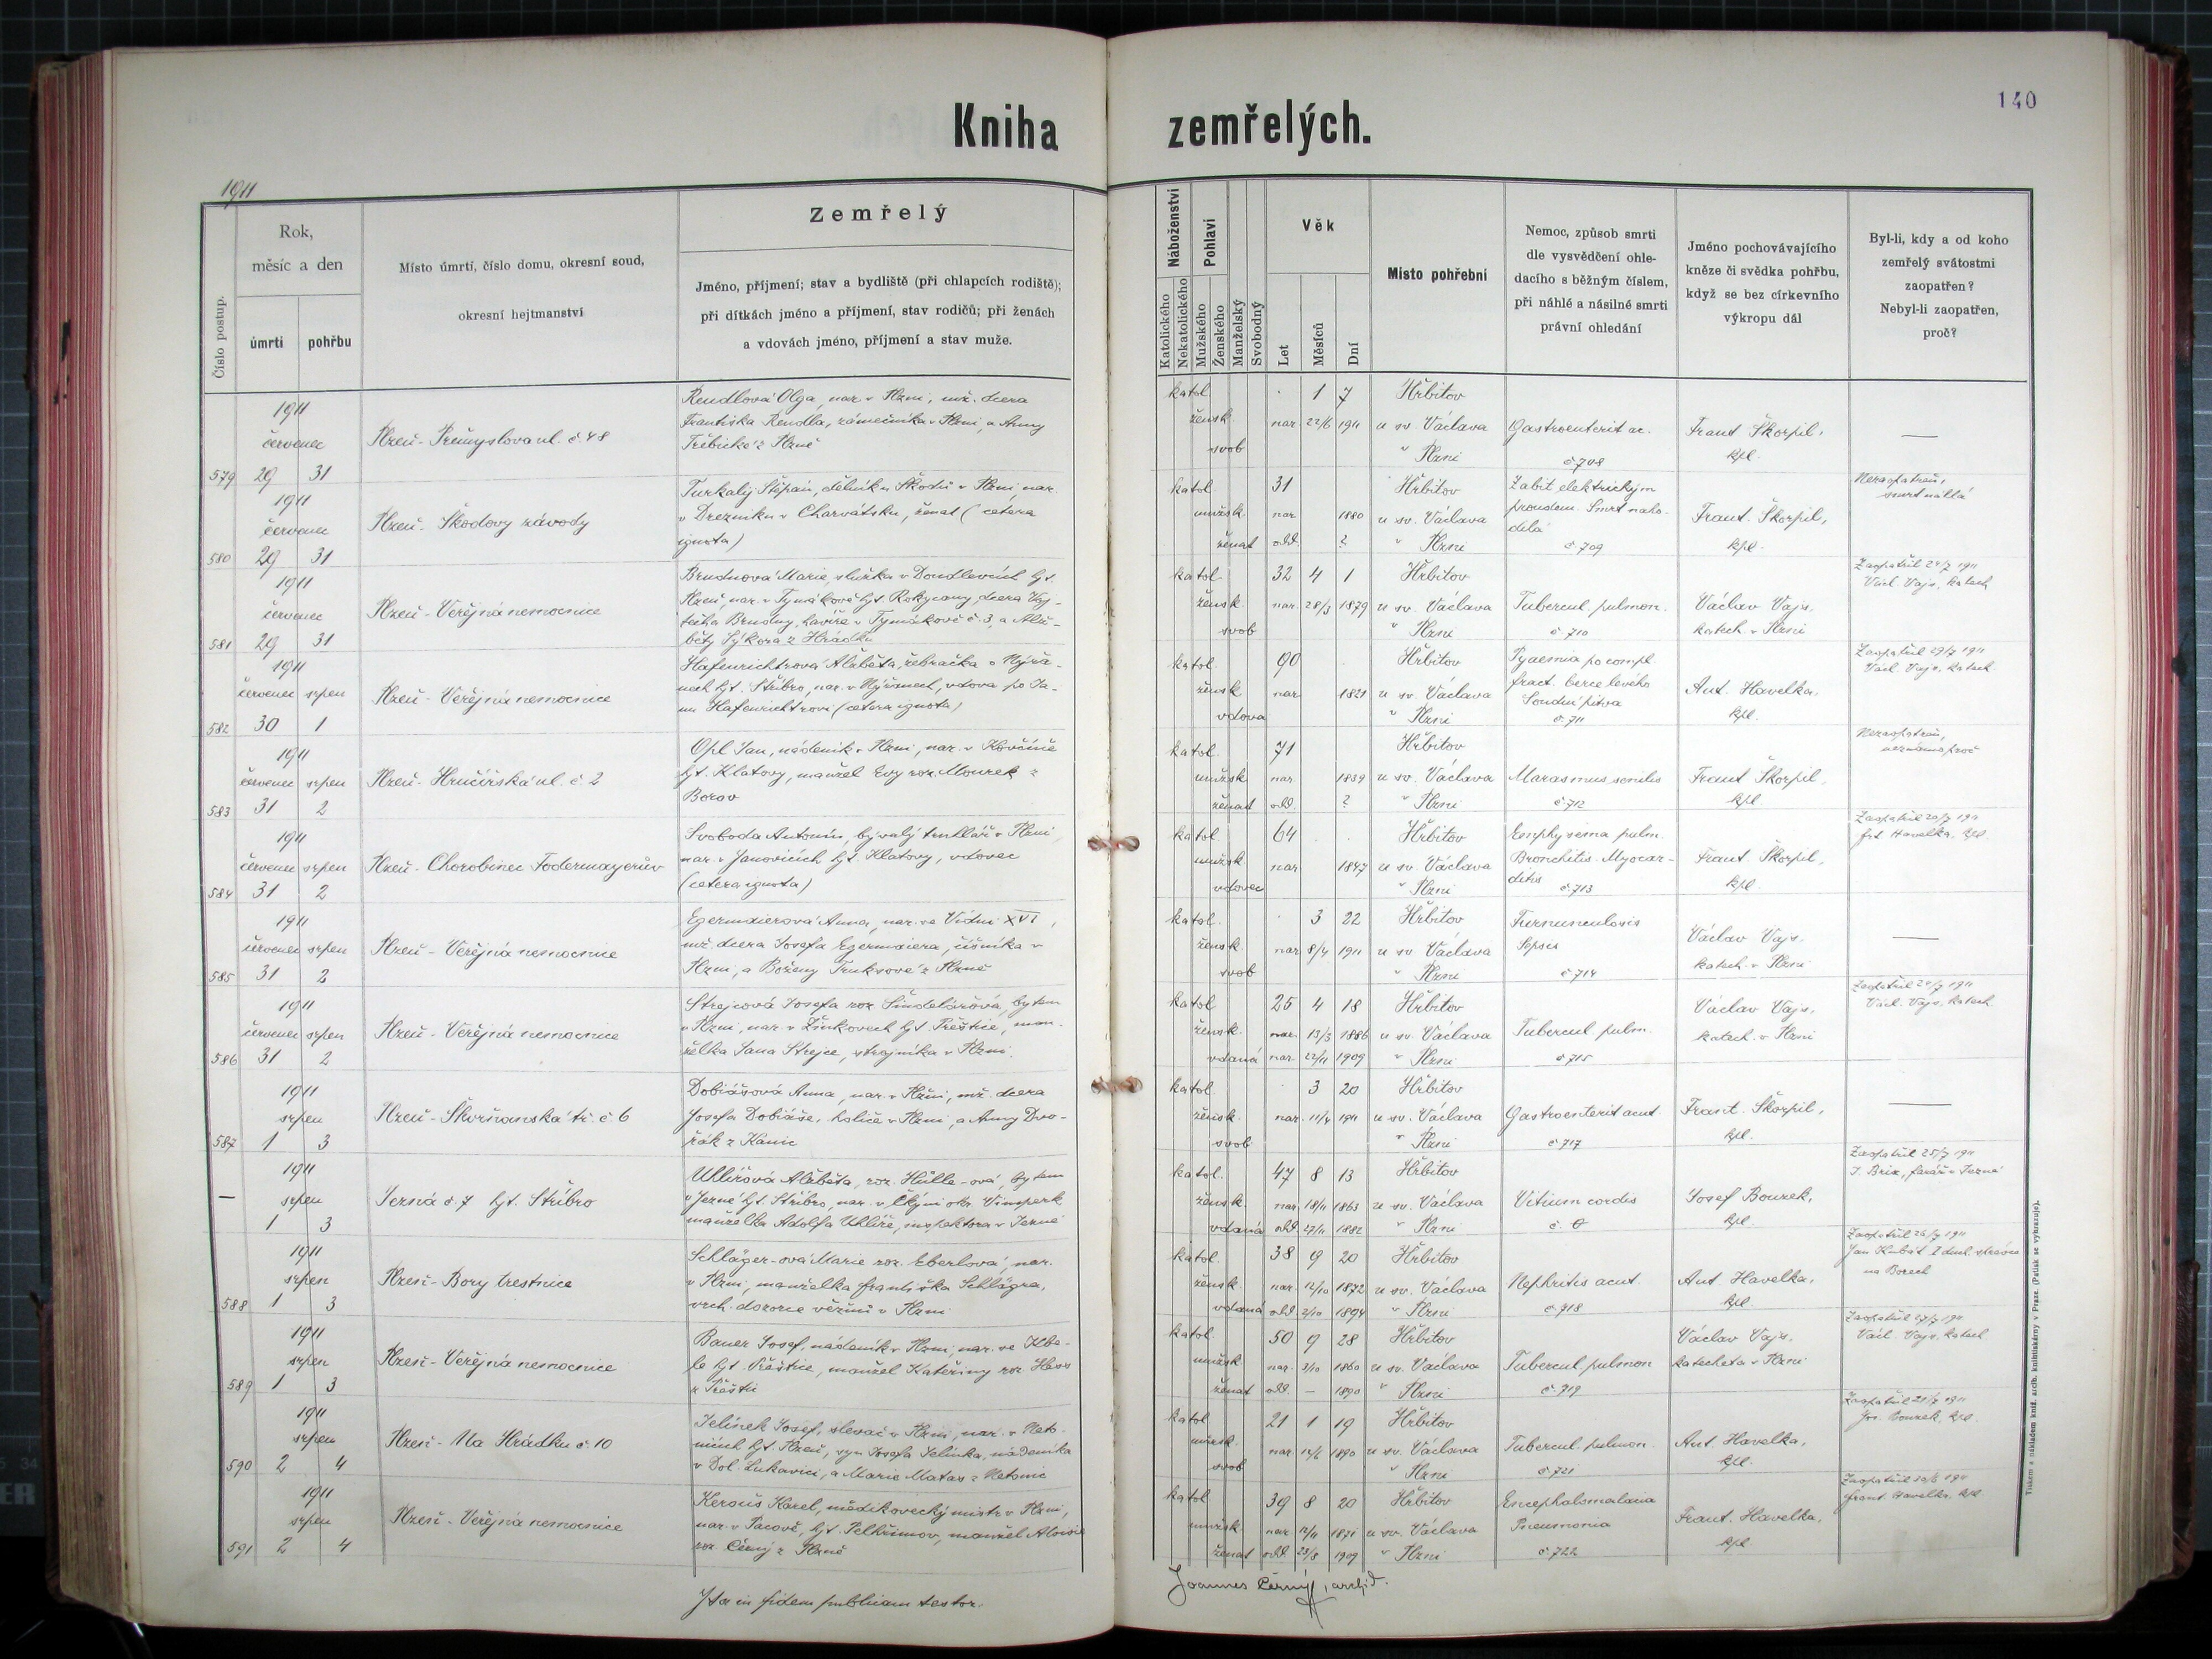 140
Kniha zemřelých.
1911
Číslo postup.
Rok,
měsíc a den
úmrtí
pohřbu
Místo úmrtí, číslo domu, okresní soud,
okresní hejtmanství
Zemřelý
Jméno, příjmení; stav a bydliště (při chlapcích rodiště);
při dítkách jméno a příjmení, stav rodičů; při ženách
a vdovách jméno, příjmení a stav muže.
Náboženství
Katolického
Nekatolického
Pohlaví
Mužského
Ženského
Manželský
Svobodný
Věk
Let
Měsíců
Dní
Místo pohřební
Nemoc, způsob smrti
dle vysvědčení ohle-
dacího s běžným číslem,
při náhlé a násilné smrti
právní ohledání
Jméno pochovávajícího
kněze či svědka pohřbu,
když se bez církevního
výkropu dál
Byl-li, kdy a od koho
zemřelý svátostmi
zaopatřen?
Nebyl-li zaopatřen,
proč?
1911
červenec
579 29 31
Plzeň - Přemyslova ul. č. 48
Rendlová Olga, nar. v Plzni, mž. dcera
Františka Rendla, zámečníka v Plzni, a Anny
Třebické z Plzně
katol. 1 7
žensk. nar. 22/6 1911
svob
Hřbitov
u sv. Václava
v Plzni
Gastroenterit ac.
č 708
Frant Škorpil,
kpl.
—
1911
červenec
580 29 31
Plzeň - Škodovy závody
Turkalij Štěpán, dělník u Škodů v Plzni, nar.
v Drezniku v Charvátsku, ženat (cetera
ignota)
katol. 31
mužsk. nar. 1880
ženat odd. ?
Hřbitov
u sv. Václava
v Plzni
Zabit elektrickým
proudem. Smrt naho-
dilá
č 709
Frant. Škorpil,
kpl.
Nezaopatřen,
smrt náhlá
1911
červenec
581 29 31
Plzeň - Veřejná nemocnice
Brudnová Marie, služka v Doudlevcích hjt.
Plzeň, nar. v Tymákově hjt. Rokycany, dcera Voj-
těcha Brudny, havíře v Tymákově č. 3, a Alž-
běty Sýkora z Hrádku
katol. 32 4 1
žensk. nar. 28/3 1879
svob
Hřbitov
u sv. Václava
v Plzni
Tubercul. pulmon.
č 710
Václav Vajs,
katech. v Plzni
Zaopatřil 24/7 1911
Václ. Vajs, katech
1911
červenec srpen
582 30 1
Plzeň - Veřejná nemocnice
Hafenrichtrová Alžběta, žebračka v Nýřa-
nech hjt. Stříbro, nar. v Nýřanech, vdova po Ja-
nu Hafenrichtrovi (cetera ignota)
katol. 90
žensk. nar. 1821
vdova
Hřbitov
u sv. Václava
v Plzni
Pyaemia po compl.
fract. berce levého
Soudní pitva
č. 711
Ant. Havelka,
kpl.
Zaopatřil 29/7 1911
Václ. Vajs, katech
1911
červenec srpen
583 31 2
Plzeň - Hrnčířská ul. č. 2
Opl Jan, nádeník v Plzni, nar. v Kovčíně
hjt. Klatovy, manžel Evy roz. Mourek z
Borov
katol. 71
mužsk nar. 1839
ženat odd. ?
Hřbitov
u sv. Václava
v Plzni
Marasmus senilis
č 712
Frant Škorpil,
kpl.
Nezaopatřen,
neznámo proč
1911
červenec srpen
584 31 2
Plzeň - Chorobinec Fodermayerův
Svoboda Antonín, bývalý truhlář v Plzni,
nar. v Janovicích hjt. Klatovy, vdovec
(cetera ignota)
katol. 64
mužsk nar. 1847
vdovec
Hřbitov
u sv. Václava
v Plzni
Emphysema pulm.
Bronchitis. Myocar-
ditis
č 713
Frant Škorpil,
kpl.
Havelka, kpl.
1911
červenec srpen
585 31 2
Plzeň - Veřejná nemocnice
Egermaierová Anna, nar. ve Vídni XVI,
mž. dcera Josefa Egermaiera, číšníka v
Plzni, a Boženy Truksové z Plzně
katol. 3 22
žensk. nar. 8/4 1911
svob
Hřbitov
u sv. Václava
v Plzni
Furunculosis
Sepsis
č 714
Václav Vajs,
katech. v Plzni
—
1911
červenec srpen
586 31 2
Plzeň - Veřejná nemocnice
Strejcová Josefa roz. Šindelářová, bytem
v Plzni, nar. v Žinkovech hjt Přeštice, man-
želka Jana Strejce, strojníka v Plzni.
katol 25 4 18
žensk. nar. 13/3 1886
vdaná 22/11 1909
Hřbitov
u sv. Václava
v Plzni
Tubercul pulm.
č 715
Václav Vajs,
katech. v Plzni
Zaopatřil 24/7 1911
Václ. Vajs, katech.
1911
srpen
587 1 3
Plzeň - Skvrňanská tř. č. 6
Dobiášová Anna, nar. v Plzni, mž. dcera
Josefa Dobiáše, holiče v Plzni, a Anny Dvo-
řák z Kanic
katol. 3 20
žensk. nar. 11/4 1911
svob
Hřbitov
u sv. Václava
v Plzni
Gastroenterit acut.
č 717
Frant. Škorpil,
kpl.
—
1911
srpen
— 1 3
Jezná č. 7 hjt. Stříbro
Uhlířová Alžběta, roz. Hülle-ová, bytem
v Jezné hjt. Stříbro, nar. v Čkyni okr Vimperk
manželka Adolfa Uhlíře, inspektora v Jezné
katol. 47 8 13
žensk. nar. 18/11 1863
vdaná odd. 27/11 1882
Hřbitov
u sv. Václava
v Plzni
Vitium cordis
č. 0
Josef Bouzek,
kpl.
Zaopatřil 25/7 1911
J. Brix, farář v Jezné
1911
srpen
588 1 3
Plzeň - Bory trestnice
Schläger-ová Marie roz. Eberlová, nar.
v Plzni, manželka Františka Schlägra,
vrch. dozorce vězňů v Plzni
katol. 38 9 20
žensk. nar. 12/10 1872
vdaná odd. 2/10 1894
Hřbitov
u sv. Václava
v Plzni
Nephritis acut.
č 718
Ant. Havelka,
kpl.
Zaopatřil 26/7 1911
Jan Kubát duch. správce
na Borech
1911
srpen
589 1 3
Plzeň - Veřejná nemocnice
Bauer Josef, nádeník v Plzni, nar. ve Kbe-
le hjt. Přeštice, manžel Kateřiny roz
z Přeštic
katol. 50 9 28
mužsk nar. 3/10 1860
ženat odd. — 1890
Hřbitov
u sv. Václava
v Plzni
Tubercul pulmon
č. 719
Václav Vajs,
katecheta v Plzni
Zaopatřil 27/7 1911
Václ. Vajs, katech
1911
srpen
590 2 4
Plzeň - Na Hrádku č. 10
Jelínek Josef, slevač v Plzni, nar. v Neto-
nicích hjt. Plzeň, syn Josefa Jelínka, nádeníka
v Dol. Lukavici, a Marie Matas z Netonic
katol 21 1 19
mužsk. nar. 14/6 1890
svob
Hřbitov
u sv. Václava
v Plzni
Tubercul. pulmon.
č 721
Ant. Havelka,
kpl.
Jos. Bouzek, kpl.
1911
srpen
591 2 4
Plzeň - Veřejná nemocnice
Kerouš Karel, mědikovecký mistr v Plzni,
nar. v Pacově, hjt. Pelhřimov, manžel Aloisie
roz. Černý z Plzně
katol 39 8 20
mužsk. nar. 12/11 1871
ženat odd. 23/8 1909
Hřbitov
u sv. Václava
v Plzni
Encephalomalacia
Pneumonia
č 722
Frant. Havelka,
kpl
Frant. Havelka, kpl
Ita in fidem publicam testor.
Joannes Černý, archid.
Tiskem a nákladem kníž. arcib. knihtiskárny v Praze. (Patisk se vyhrazuje).